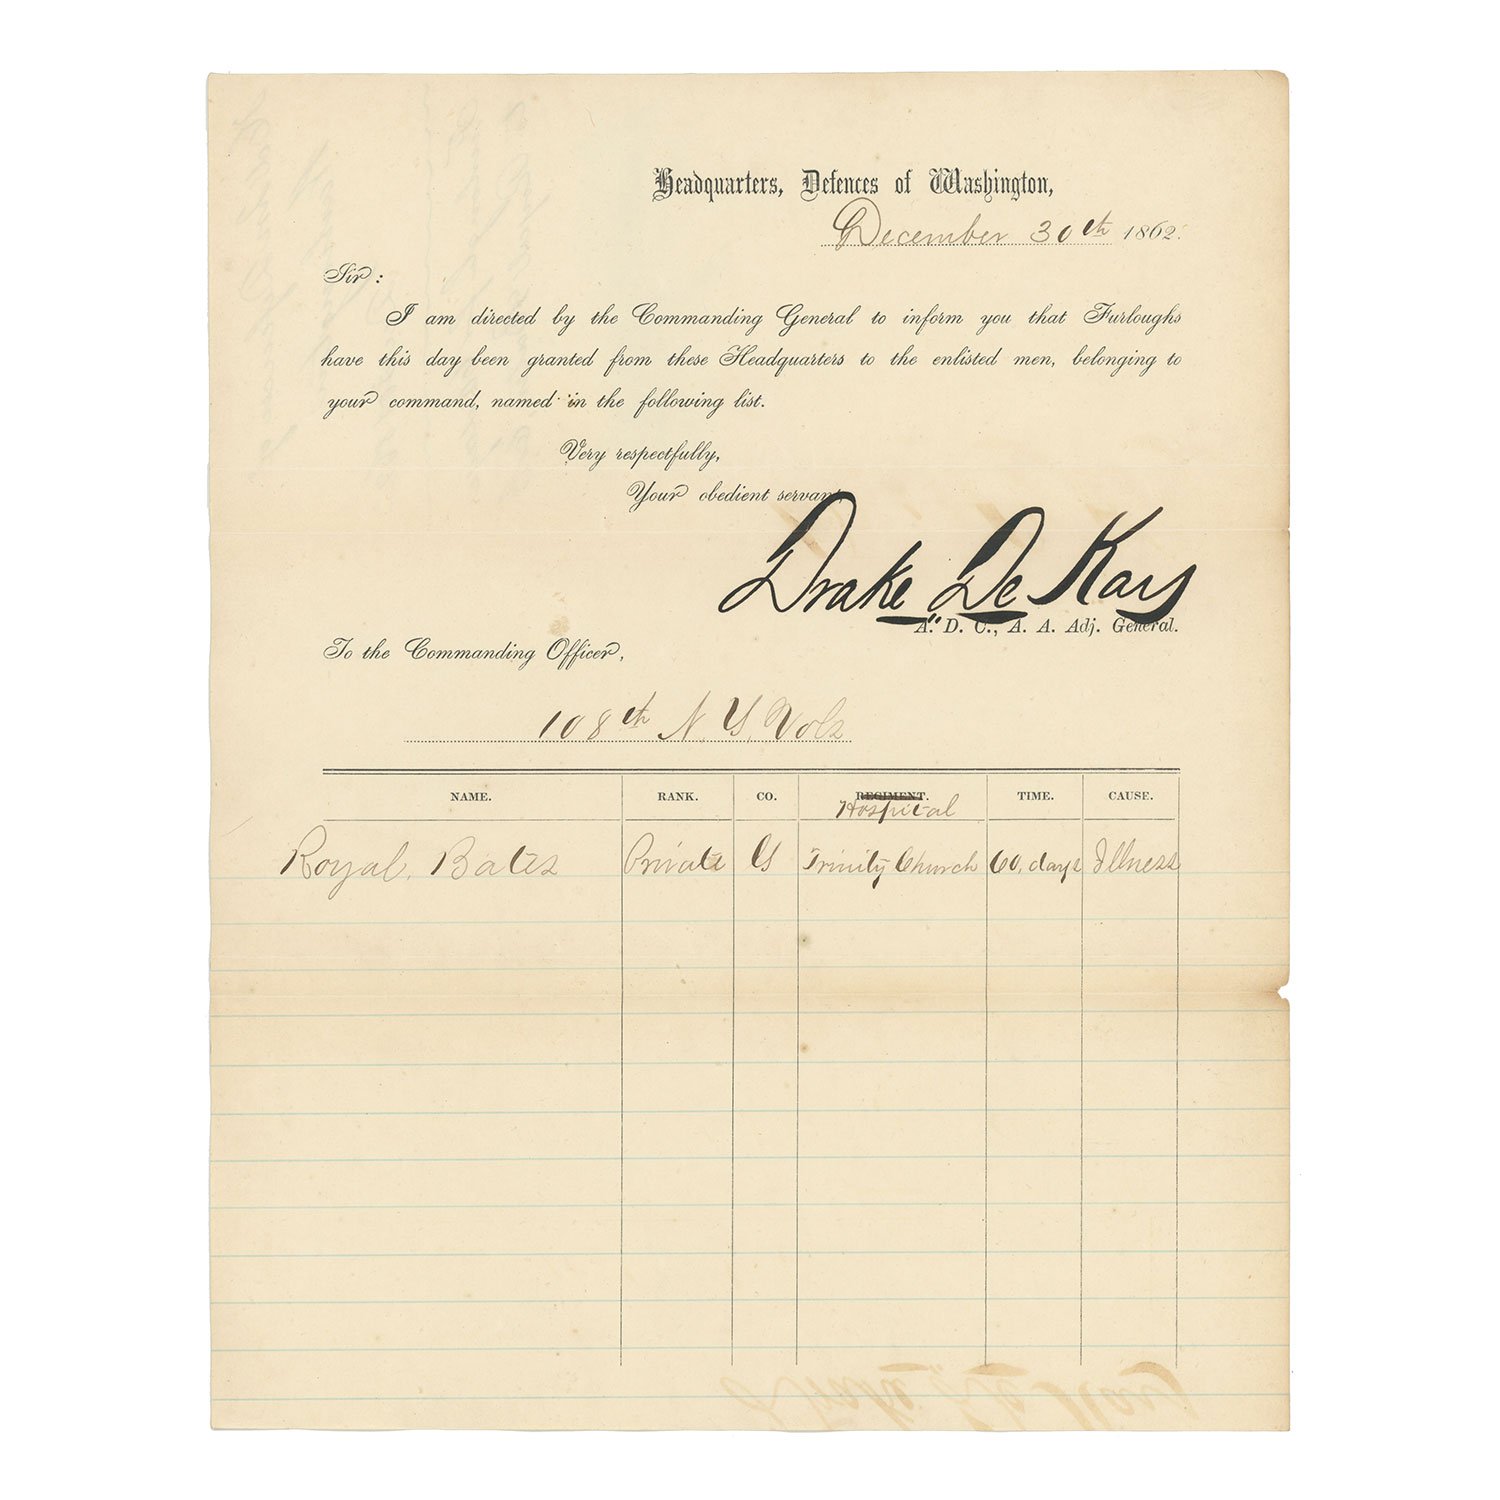 Headquarters, Defences of Washington,
December 30th 1862.
Sir:
I am directed by the Commanding General to inform you that Furloughs
have this day been granted from these Headquarters to the enlisted men, belonging to
your command, named in the following list.
Very respectfully,
Your obedient servant,
Drake De Kay
A. D. C., A. A. Adj. General.
To the Commanding Officer,
108th N. Y. Vols
NAME. RANK. CO. REGIMENT. TIME. CAUSE.
Hospital
Royal. Bates Private G Trinity Church 60, days Illness